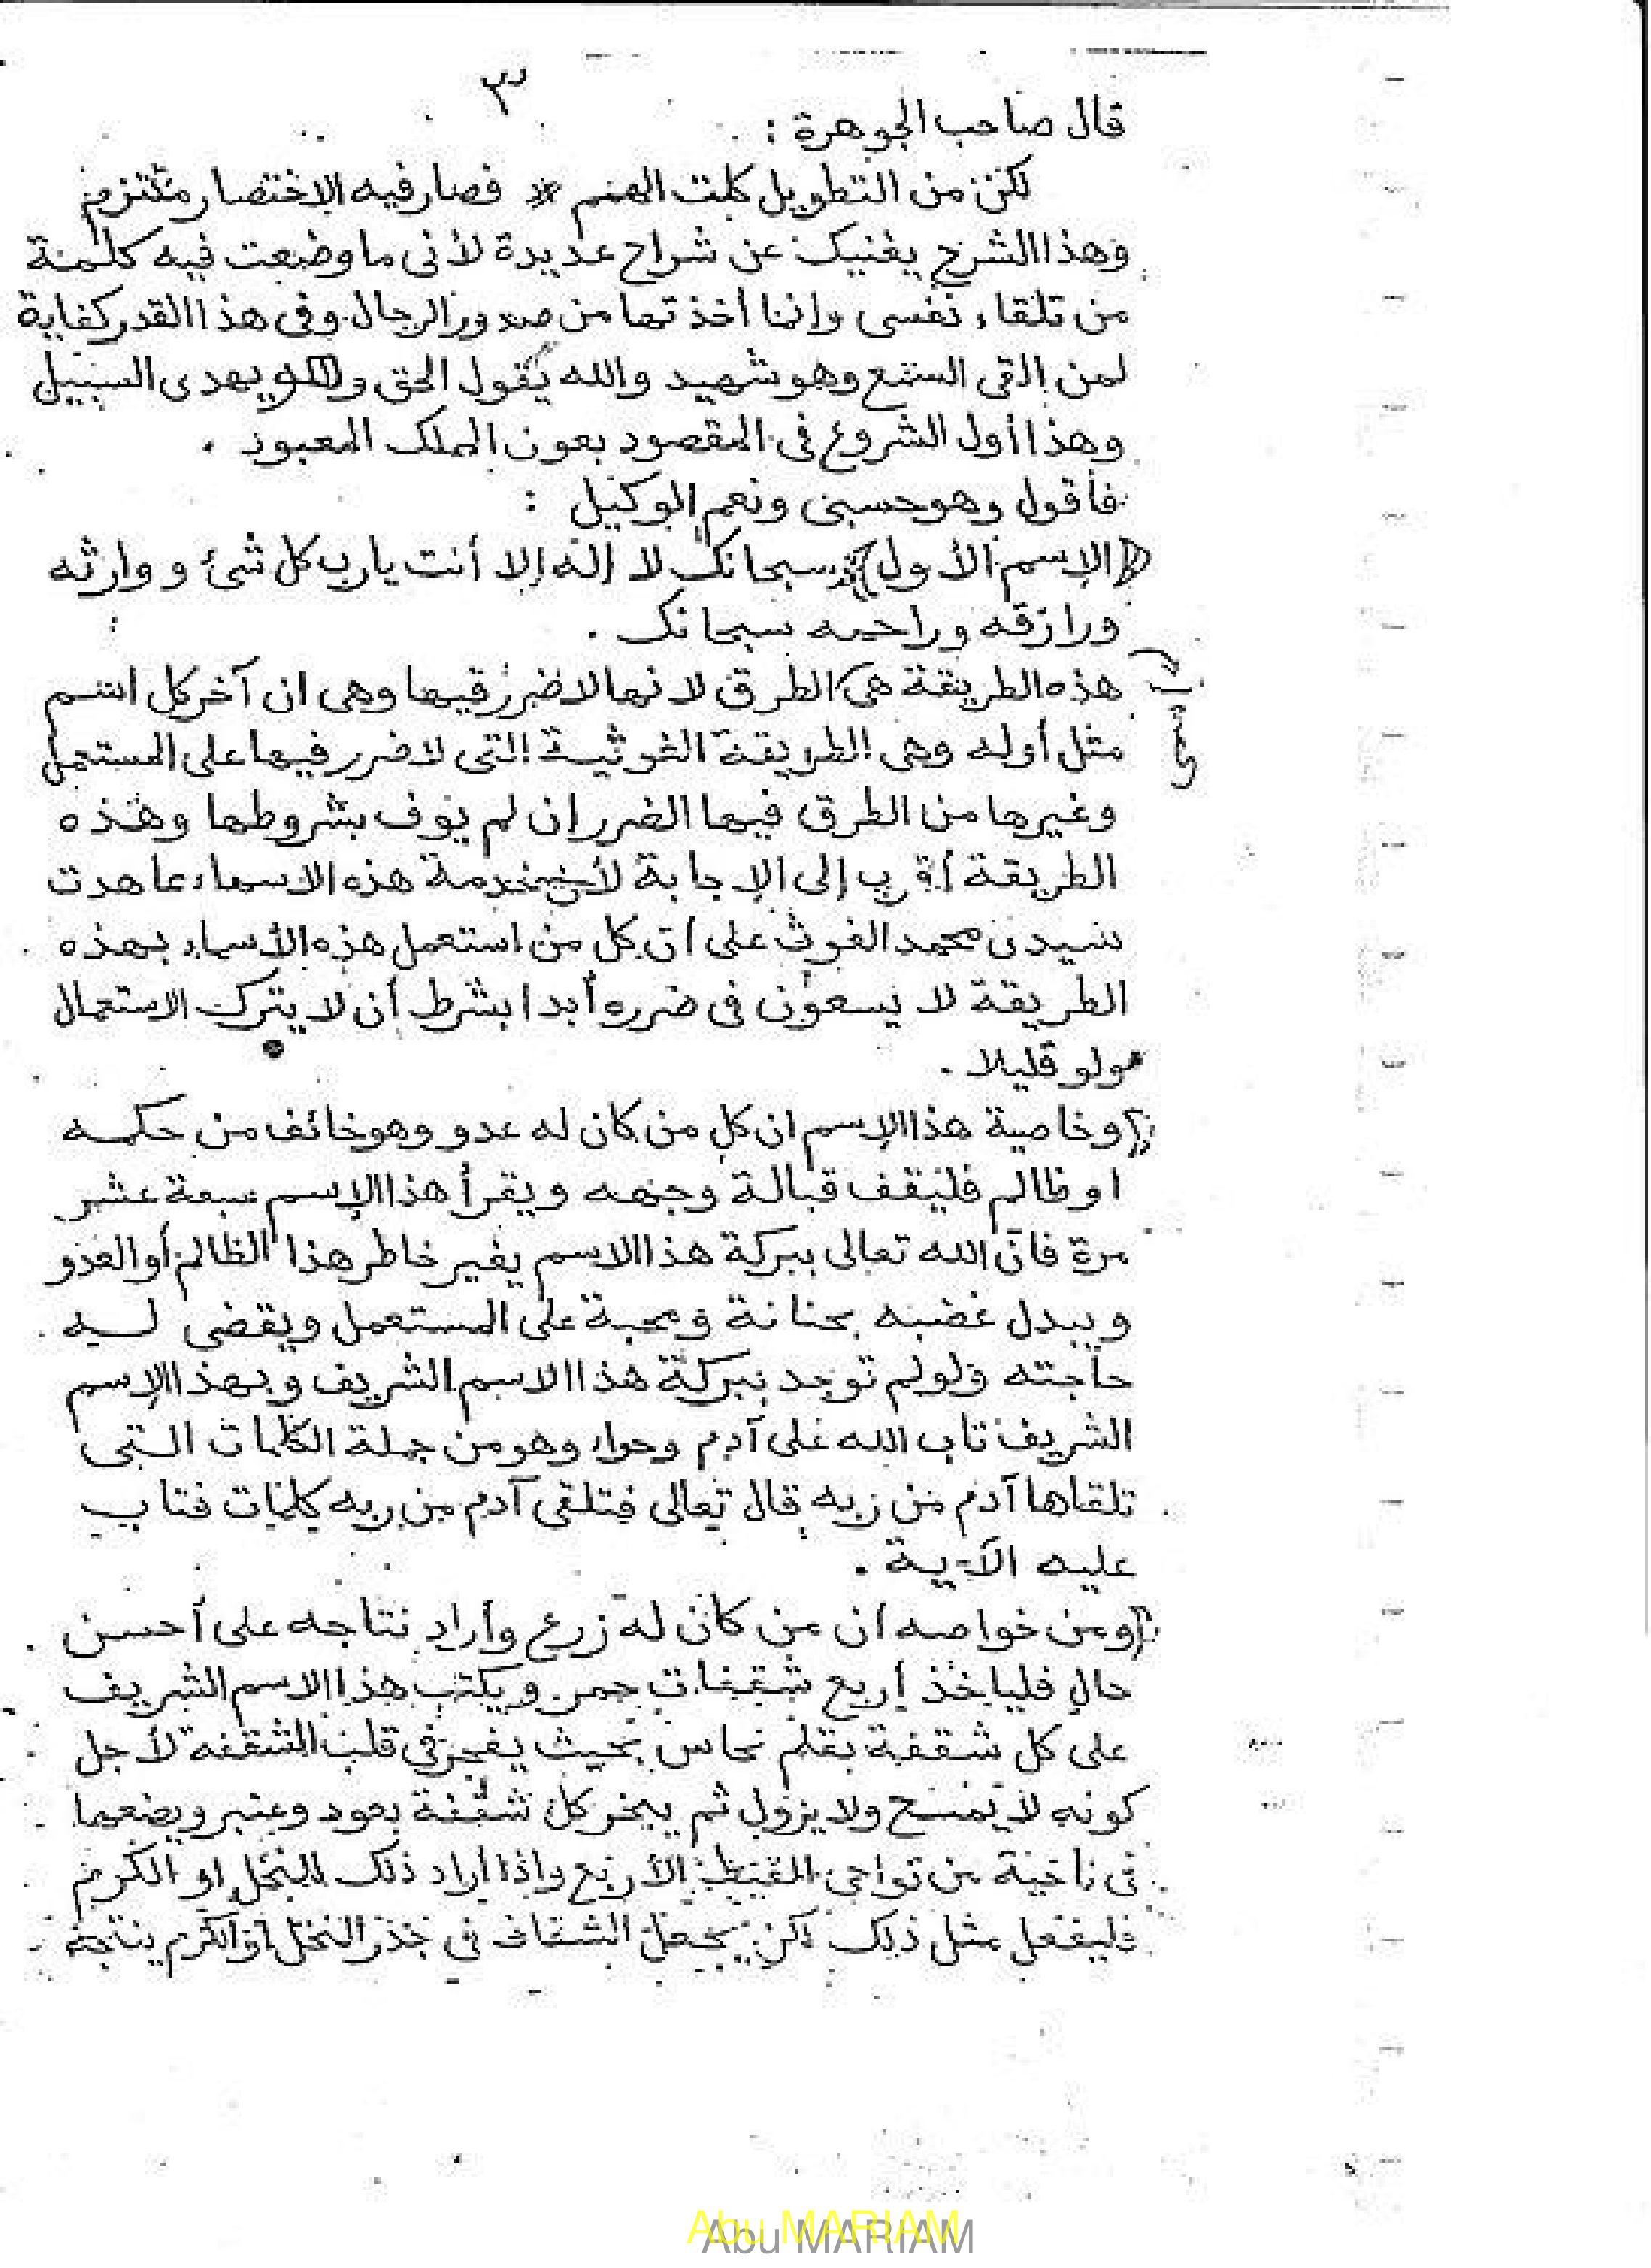 ٣
قال صاحب الجوهرة :
لكن من التطويل كلت الهمم * فصار فيه الاختصار ملتزم
وهذا الشرح يغنيك عن شراح عديدة لأنى ما وضعت فيه كلمة
من تلقاء نفسى وإنما أخذتها من صدور الرجال وفى هذا القدر كفاية
لمن ألقى السمع وهو شهيد والله يقول الحق وهو يهدى السبيل
وهذا أول الشروع فى المقصود بعون الملك المعبود .
فأقول وهو حسبى ونعم الوكيل :
(الإسم الأول) سبحانك لا إله إلا أنت يارب كل شئ و وارثه
ورازقه وراحمه سبحانك .
هذه الطريقة هى الطرق لانها لا ضرر فيها وهى ان آخر كل اسم
مثل أوله وهى الطريقة الغوثية التى لا ضرر فيها على المستعمل
وغيرها من الطرق فيها الضرر إن لم يوف بشروطها وهذه
الطريقة أقرب إلى الإجابة لأن خدمة هذه الاسماء عاهدت
سيدى محمد الغوث على أن كل من استعمل هذه الأسماء بهذه
الطريقة لا يسعون فى ضرره أبدا بشرط أن لا يترك الاستعمال
ولو قليلا .
(وخاصية هذا الإسم ان كل من كان له عدو وهو خائف من حكمه
او ظالم فليقف قبالة وجهه ويقرأ هذا الإسم سبعة عشر
مرة فان الله تعالى ببركة هذا الاسم يغير خاطر هذا الظالم أو العدو
ويبدل غضبه بحنانة ومحبة على المستعمل ويقضى له
حاجته ولو لم توجد ببركة هذا الاسم الشريف وبهذا الإسم
الشريف تاب الله على آدم وحواء وهو من جملة الكلمات التى
تلقاها آدم من ربه قال تعالى فتلقى آدم من ربه كلمات فتاب
عليه الآية .
(ومن خواصه أن من كان له زرع وأراد نتاجه على أحسن
حال فليأخذ أربع شقفات حمر ويكتب هذا الاسم الشريف
على كل شقفة بقلم نحاس بحيث يفجر فى قلب الشقفه لأجل
كونه لا يمسح ولا يزول ثم يبخر كل شقفة بعود وعنبر ويضعها
فى ناحية من نواحى الغيط الأربع واذا أراد ذلك للنخل او الكرم
فليفعل مثل ذلك لكن يجعل الشقاف فى جذر النخل او الكرم
Abu MARIAM